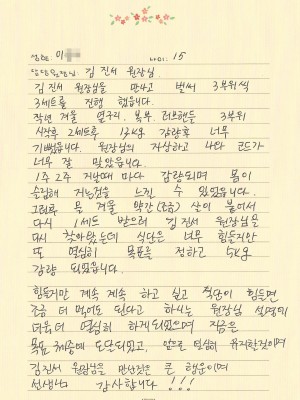 성함: 이 나이: 15
담당원장님: 김진서 원장님.
김진서 원장님을 만나고 벌써 3부위씩
3세트를 진행 했습니다.
작년 겨울 옆구리. 복부. 러브핸들 3부위
시작후 2세트를 13kg 감량후 너무
기뻤습니다. 원장님의 자상하고 나와 코드가
너무 잘 맞았습니다.
1주 2주 지날때 마다 감량되며 몸이
슬림해 지는걸을 느낄 수 있었습니다.
그리고 올 겨울 약간(조금) 살이 붙어서
다시 1세트 받으러 김진서 원장님을
다시 찾아왔는데 식단은 너무 힘들지만
또 열심히 목표를 정하고 5kg
감량 되었습니다.
힘들지만 계속 계속 하고 싶고 식단이 힘들면
조금 더 먹어도 된다고 하시는 원장님 설명에
더욱더 열심히 하게되었으며 지금은
목표 체중에 도달되었고, 앞으로 열심히 유지할것이며
김진서 원장님을 만난것은 큰 행운이며
선생님 감사합니다 !!!